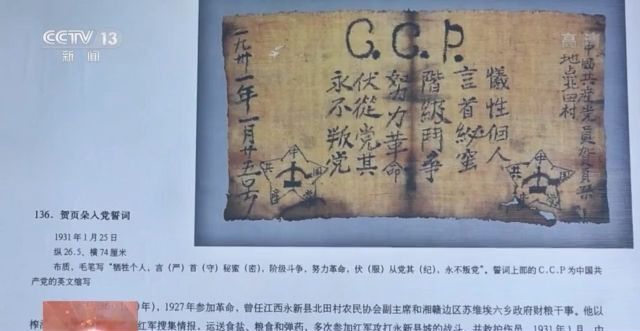 CCTV 13
新闻
高清
C.C.P.
地點北田村
犧牲個人
言首秘蜜
階級鬥爭
努力革命
伏從党其
永不叛党
一九卅一年一月廿五号
136. 贺页朵入党誓词
1931年1月25日
纵26.5，横74厘米
布质，毛笔写“牺牲个人，言（严）首（守）秘蜜（密），阶级斗争，努力革命，伏（服）从党其（纪），永不叛党”。誓词上部的C.C.P为中国共
产党的英文缩写
年），1927年参加革命，曾任江西永新县北田村农民协会副主席和湘赣边区苏维埃六乡政府财粮干事。他以
红军搜集情报，运送食盐、粮食和弹药，多次参加红军攻打永新县城的战斗，并救护伤员。1931年1月，